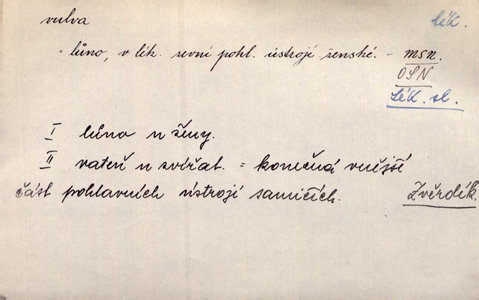 vulva lék.
- lůno, v lék. zevní pohl. ústrojí ženské. - MSN.
OSN
Lék. sl.
I lůno u ženy.
II u zvířat. = konečná vnější
část pohlavních ústrojí samičích. Zvěrolék.